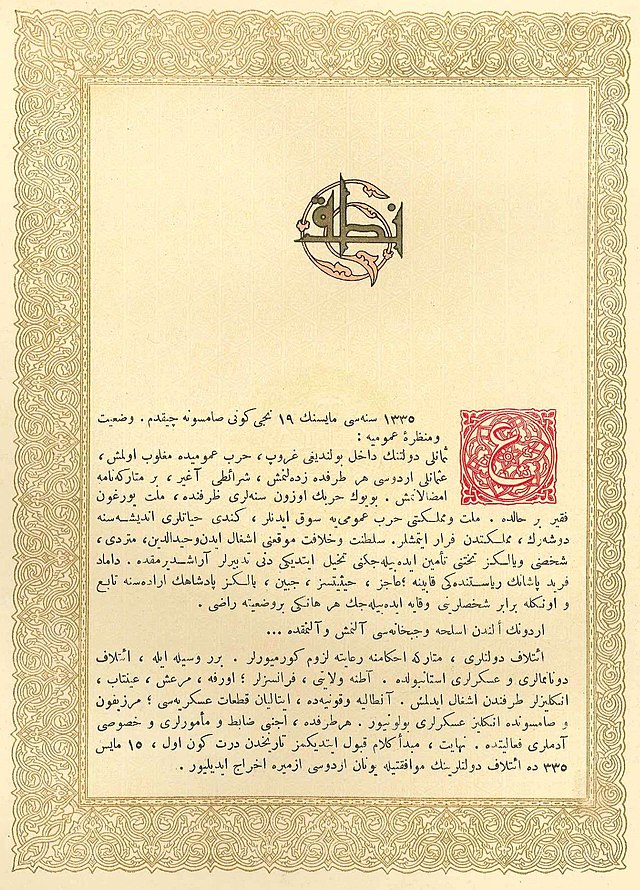 نطق
١٣٣٥ سنه‌سی مایسنك ١٩ نجی كونی صامسونه چیقدم . وضعیت
ومنظرهٔ عمومیه :
ع
ثمانلی دولتنك داخل بولندیغی غروپ ، حرب عمومیده مغلوب اولمش ،
عثمانلی اردوسی هر طرفده زده‌لنمش ، شرائطی آغیر ، بر متاركه‌نامه
امضالانمش . بویوك حربك اوزون سنه‌لری ظرفنده ، ملت یورغون
فقیر بر حالده . ملت ومملكتی حرب عمومی‌یه سوق ایدنلر ، كندی حیاتلری اندیشه‌سنه
دوشه‌رك ، مملكتدن فرار ایتمشلر . سلطنت وخلافت موقعنی اشغال ایدن وحیدالدین، متردی ،
شخصنی ویالكز تختنی تأمین ایده‌بیله‌جكنی تخیل ایتدیكی دنی تدبیرلر آراشدیرمقده . داماد
فرید پاشانك ریاستنده‌كی قابینه ؛ عاجز ، حیثیتسز ، جبین ، یالكز پادشاهك اراده‌سنه تابع
و اونكله برابر شخصلرینی وقایه ایده‌بیله‌جك هر هانكی بر وضعیته راضی .
اردونك ألندن اسلحه وجبخانه‌سی آلنمش وآلنمقده ...
ائتلاف دولتلری ، متاركه احكامنه رعایته لزوم كورمیورلر . برر وسیله ایله ، ائتلاف
دونانمالری و عسكرلری استانبولده . آطنه ولایتی ، فرانسزلر ؛ اورفه ، مرعش ، عینتاب ،
انكلیزلر طرفندن اشغال ایدلمش . آنطالیه وقونیه‌ده ، ایتالیان قطعات عسكریه‌سی ؛ مرزیفون
و صامسونده انكلیز عسكرلری بولونیور . هر طرفده ، اجنبی ضابط و مأمورلری و خصوصی
آدملری فعالیتده . نهایت ، مبدأ كلام قبول ایتدیكمز تاریخدن درت كون اول ، ١٥ مایس
٣٣٥ ده ائتلاف دولتلرینك موافقتیله یونان اردوسی ازمیره اخراج ایدیلیور .